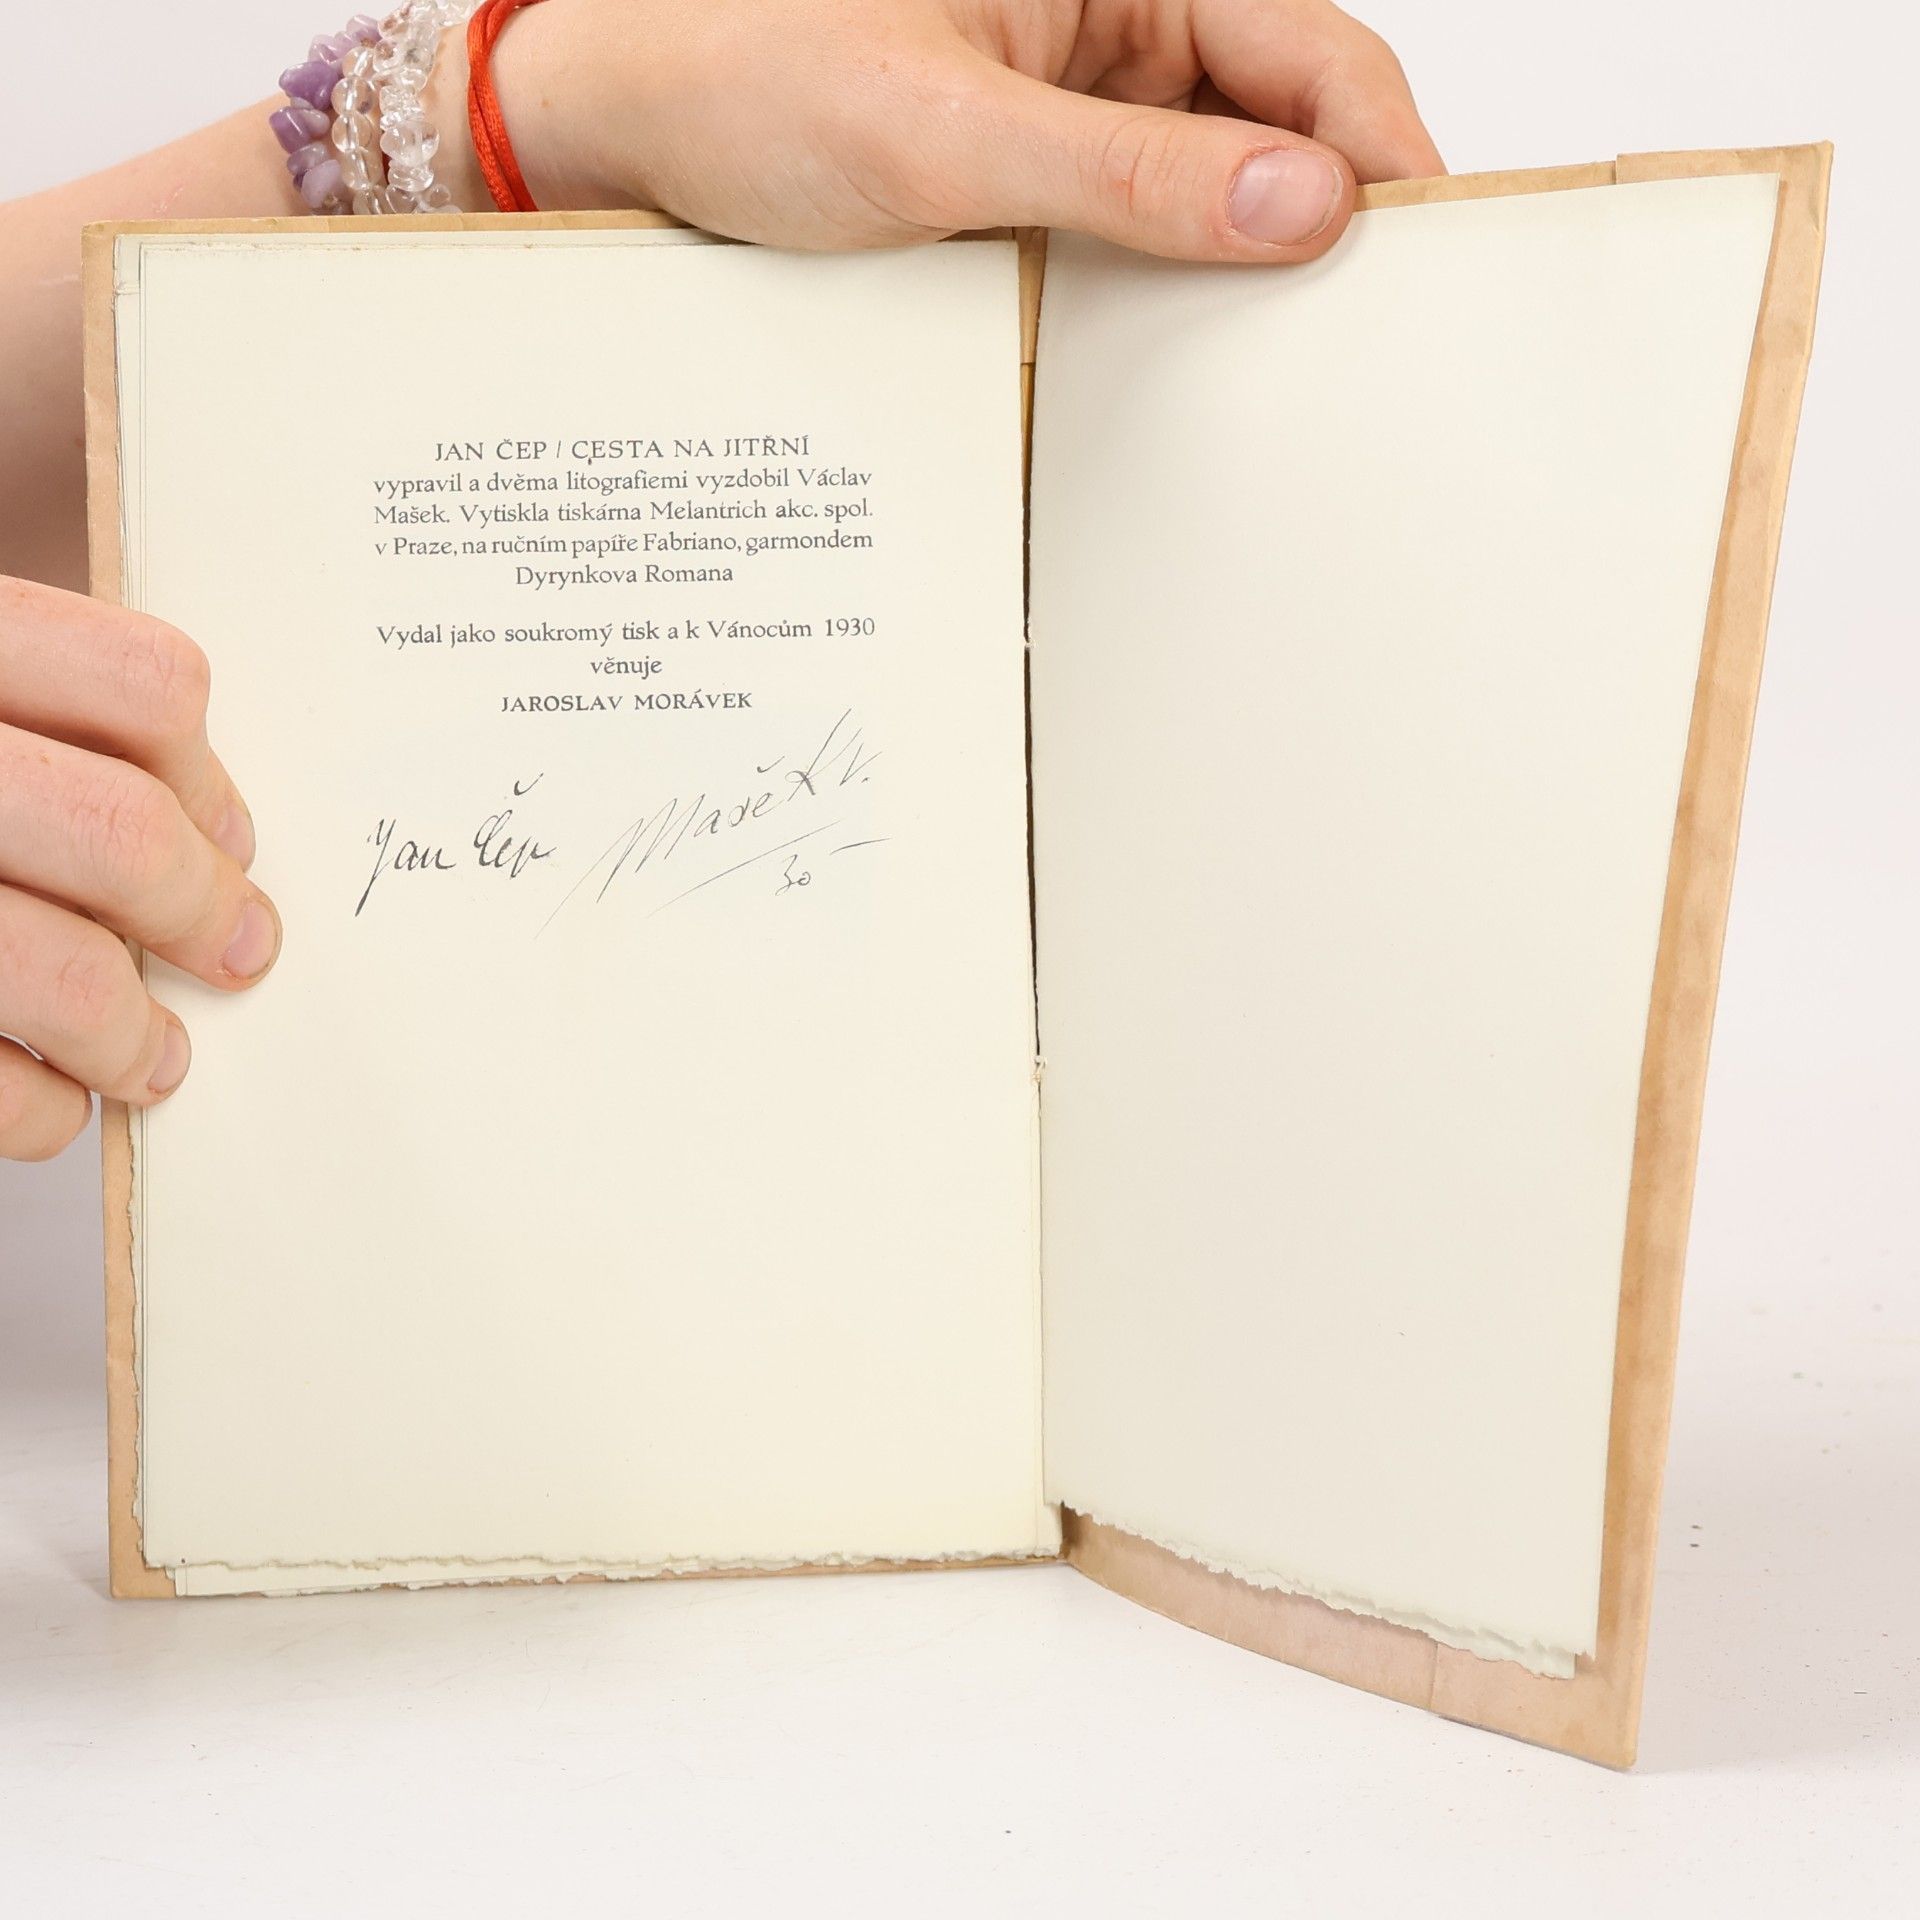 JAN ČEP / CESTA NA JITŘNÍ
vypravil a dvěma litografiemi vyzdobil Václav
Mašek. Vytiskla tiskárna Melantrich akc. spol.
v Praze, na ručním papíře Fabriano, garmondem
Dyrynkova Romana
Vydal jako soukromý tisk a k Vánocům 1930
věnuje
JAROSLAV MORÁVEK
Jan Čep Mašek V.
30